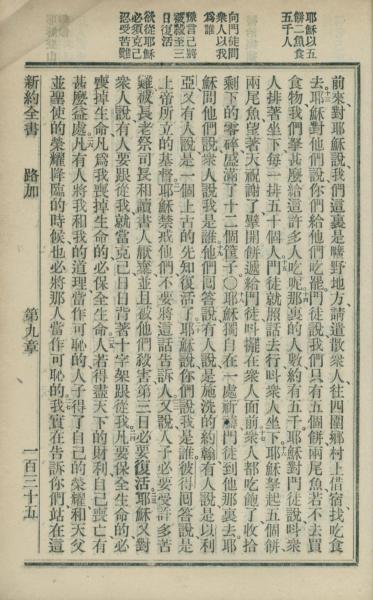 耶穌以五
餅二魚食
五千人
向門徒問
衆人以我
爲誰
豫言己將
被殺至三
日復活
欲從耶穌
必須克己
忍受苦難
前來對耶穌說我們這裏是曠野地方請遣散衆人往四圍鄉村上借宿找吃食
去耶穌對他們說你們給他們吃罷門徒說我們只有五個餅兩尾魚若不去買
食物我們拏甚麽給這許多人吃呢那裏的人數約有五千耶穌對門徒說呌衆
人排著坐下每一排五十個人門徒就照話去行呌衆人坐下耶穌拏起五個餅
兩尾魚望著天祝謝了擘開餅遞給門徒呌擺在衆人面前衆人都吃飽了收拾
剩下的零碎盛滿了十二個筐子○耶穌獨自在一處祈禱門徒到他那裏去耶
穌問他們說衆人說我是誰他們囘答說有人說是施洗的約翰有人說是以利
亞又有人說是一個上古的先知復活了耶穌說你們說我是誰彼得囘答說是
上帝所立的基督耶穌禁戒他們不要將這話告訴人又說人子必要受許多苦
難被長老祭司長和讀書人厭棄並且被他們殺害第三日必要復活耶穌又對
衆人說有人要跟從我就當克己日日背著十字架跟從我凡要保全生命的必
喪掉生命凡爲我喪掉生命的必保全生命人若得盡天下的財利自己喪亡有
甚麽益處凡有人將我和我的道理當作可恥的人子得了自己的榮耀和天父
並聖使的榮耀降臨的時候也必將那人當作可恥的我實在告訴你們站在這
新約全書 路加 第九章 一百三十五